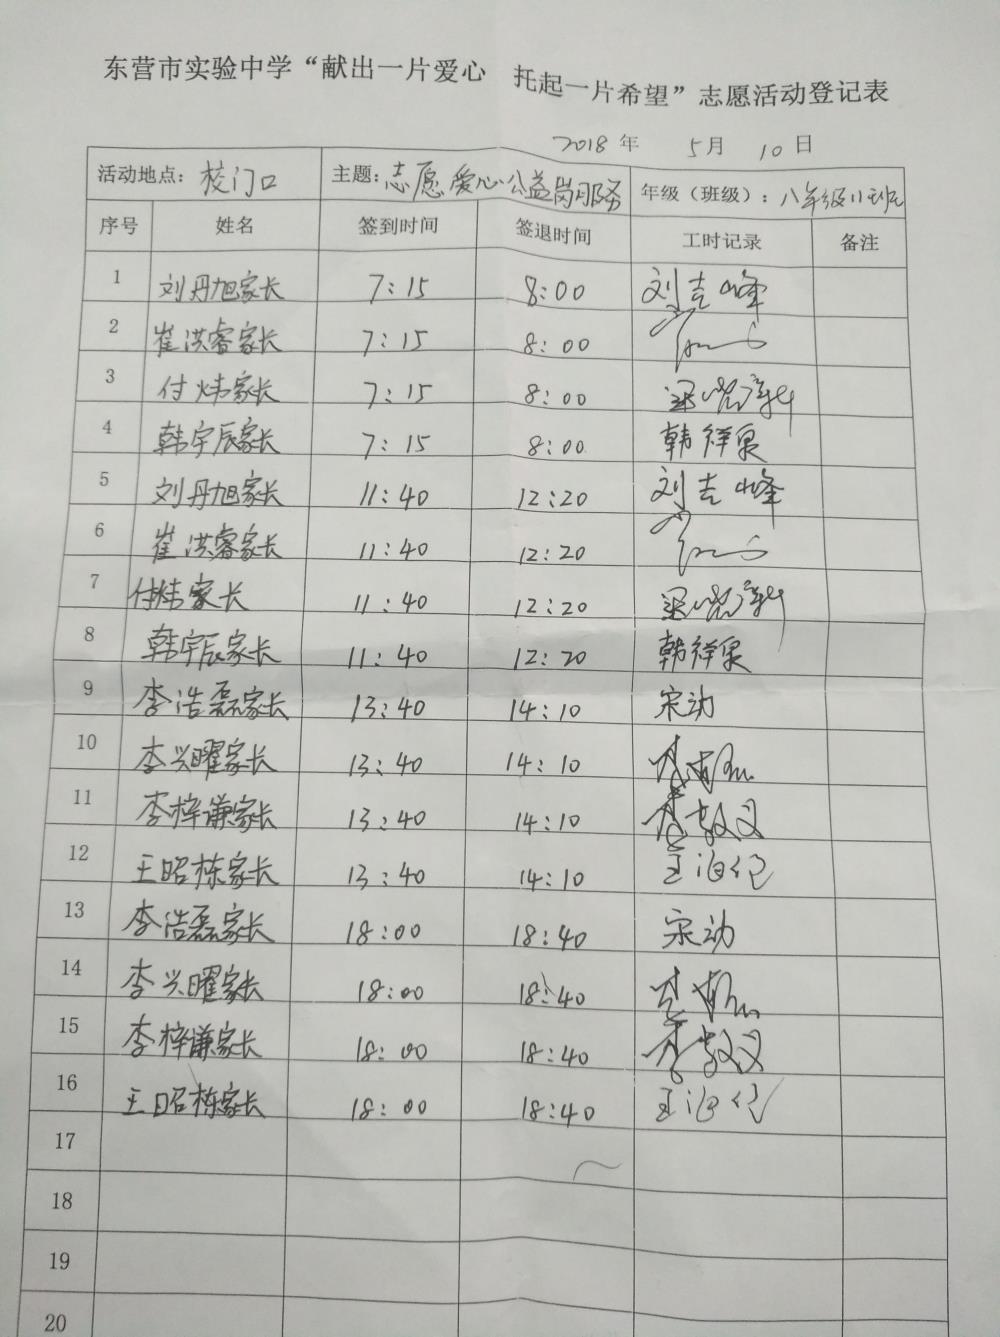 东营市实验中学“献出一片爱心 托起一片希望”志愿活动登记表
2018年 5月 10日
活动地点：校门口 主题：志愿爱心公益岗服务 年级（班级）：八年级11班
序号 姓名 签到时间 签退时间 工时记录 备注
1 刘丹旭家长 7:15 8:00 刘吉峰
2 崔洪睿家长 7:15 8:00
3 付炜家长 7:15 8:00
4 韩宇辰家长 7:15 8:00 韩祥泉
5 刘丹旭家长 11:40 12:20 刘吉峰
6 崔洪睿家长 11:40 12:20
7 付炜家长 11:40 12:20
8 韩宇辰家长 11:40 12:20 韩祥泉
9 李浩磊家长 13:40 14:10 宋动
10 李兴曜家长 13:40 14:10
11 李梓谦家长 13:40 14:10
12 王昭栋家长 13:40 14:10
13 李浩磊家长 18:00 18:40 宋动
14 李兴曜家长 18:00 18:40
15 李梓谦家长 18:00 18:40
16 王昭栋家长 18:00 18:40
17
18
19
20